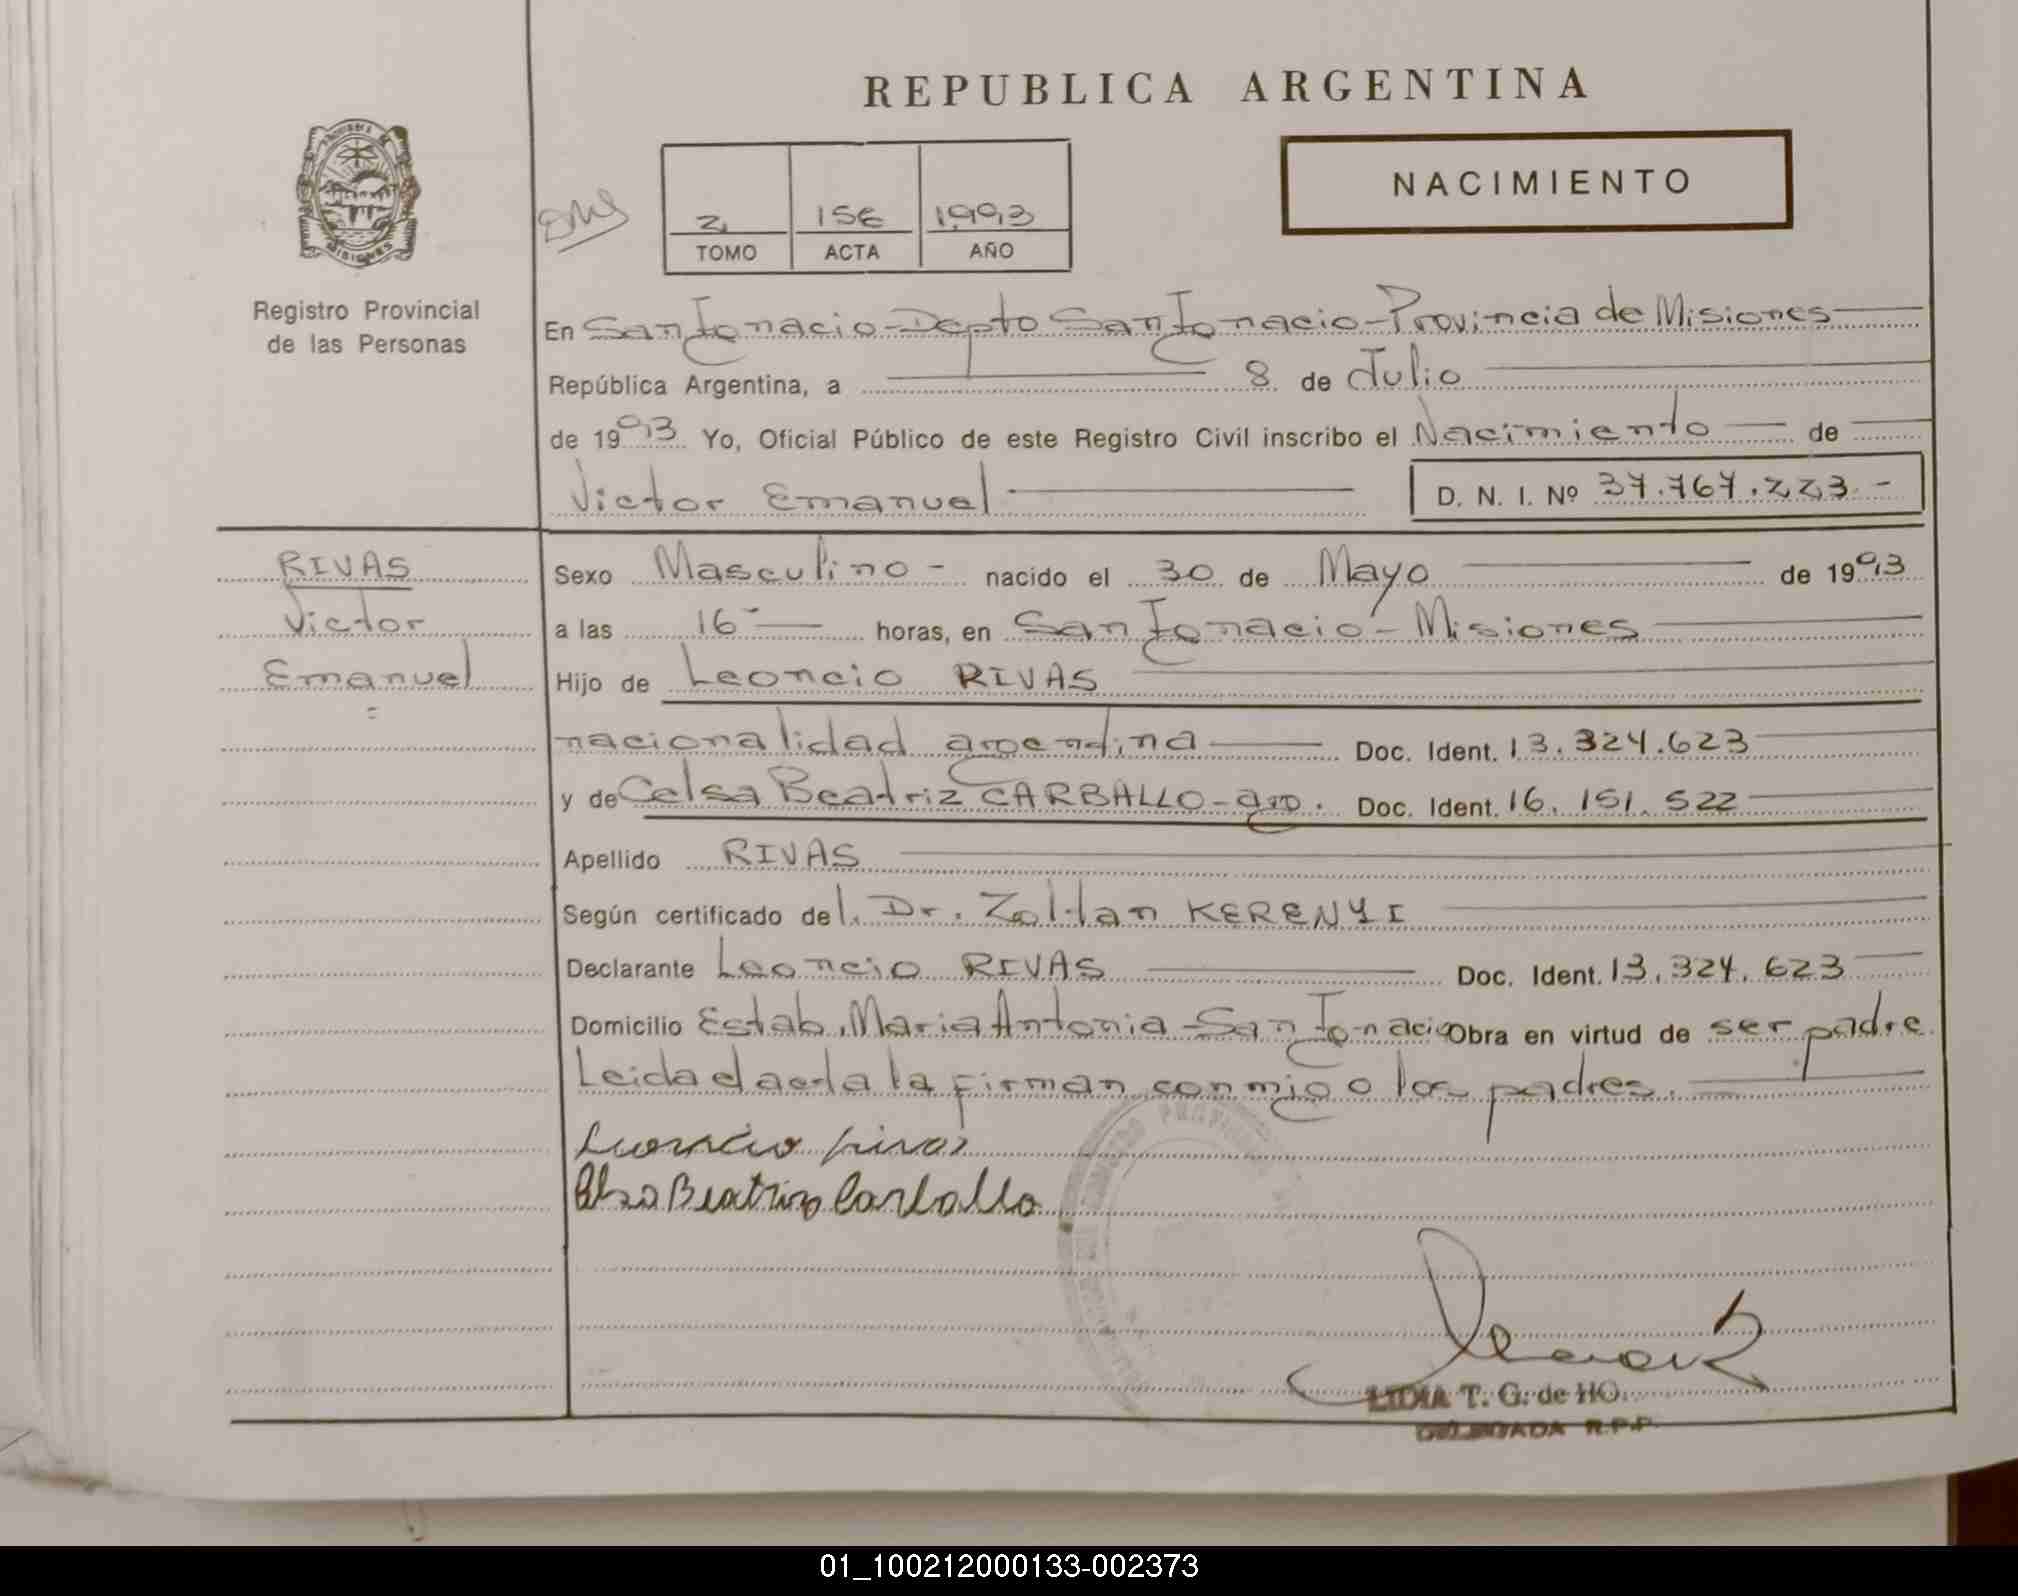 REPUBLICA ARGENTINA
NACIMIENTO
2 156 1993
TOMO ACTA AÑO
MISIONES
Registro Provincial
de las Personas
En San Ignacio - Depto San Ignacio - Provincia de Misiones
República Argentina, a 8 de Julio
de 1993 Yo, Oficial Público de este Registro Civil inscribo el Nacimiento de
Victor Emanuel D. N. I. Nº 37.767.223.-
RIVAS
Victor
Emanuel
=
Sexo Masculino - nacido el 30 de Mayo de 1993
a las 16 horas, en San Ignacio - Misiones
Hijo de Leoncio RIVAS
nacionalidad argentina Doc. Ident. 13.324.623
y de Celsa Beatriz CARBALLO - arg. Doc. Ident. 16.151.522
Apellido RIVAS
Según certificado del Dr. Zoltan KERENYI
Declarante Leoncio RIVAS Doc. Ident. 13.324.623
Domicilio Estab. Maria Antonia - San Ignacio Obra en virtud de ser padre.
Leida el acta la firman conmigo los padres.
Leoncio Rivas
Celsa Beatriz Carballo
LIDIA T. G. de HO.
DELEGADA R.P.P.
01_100212000133-002373